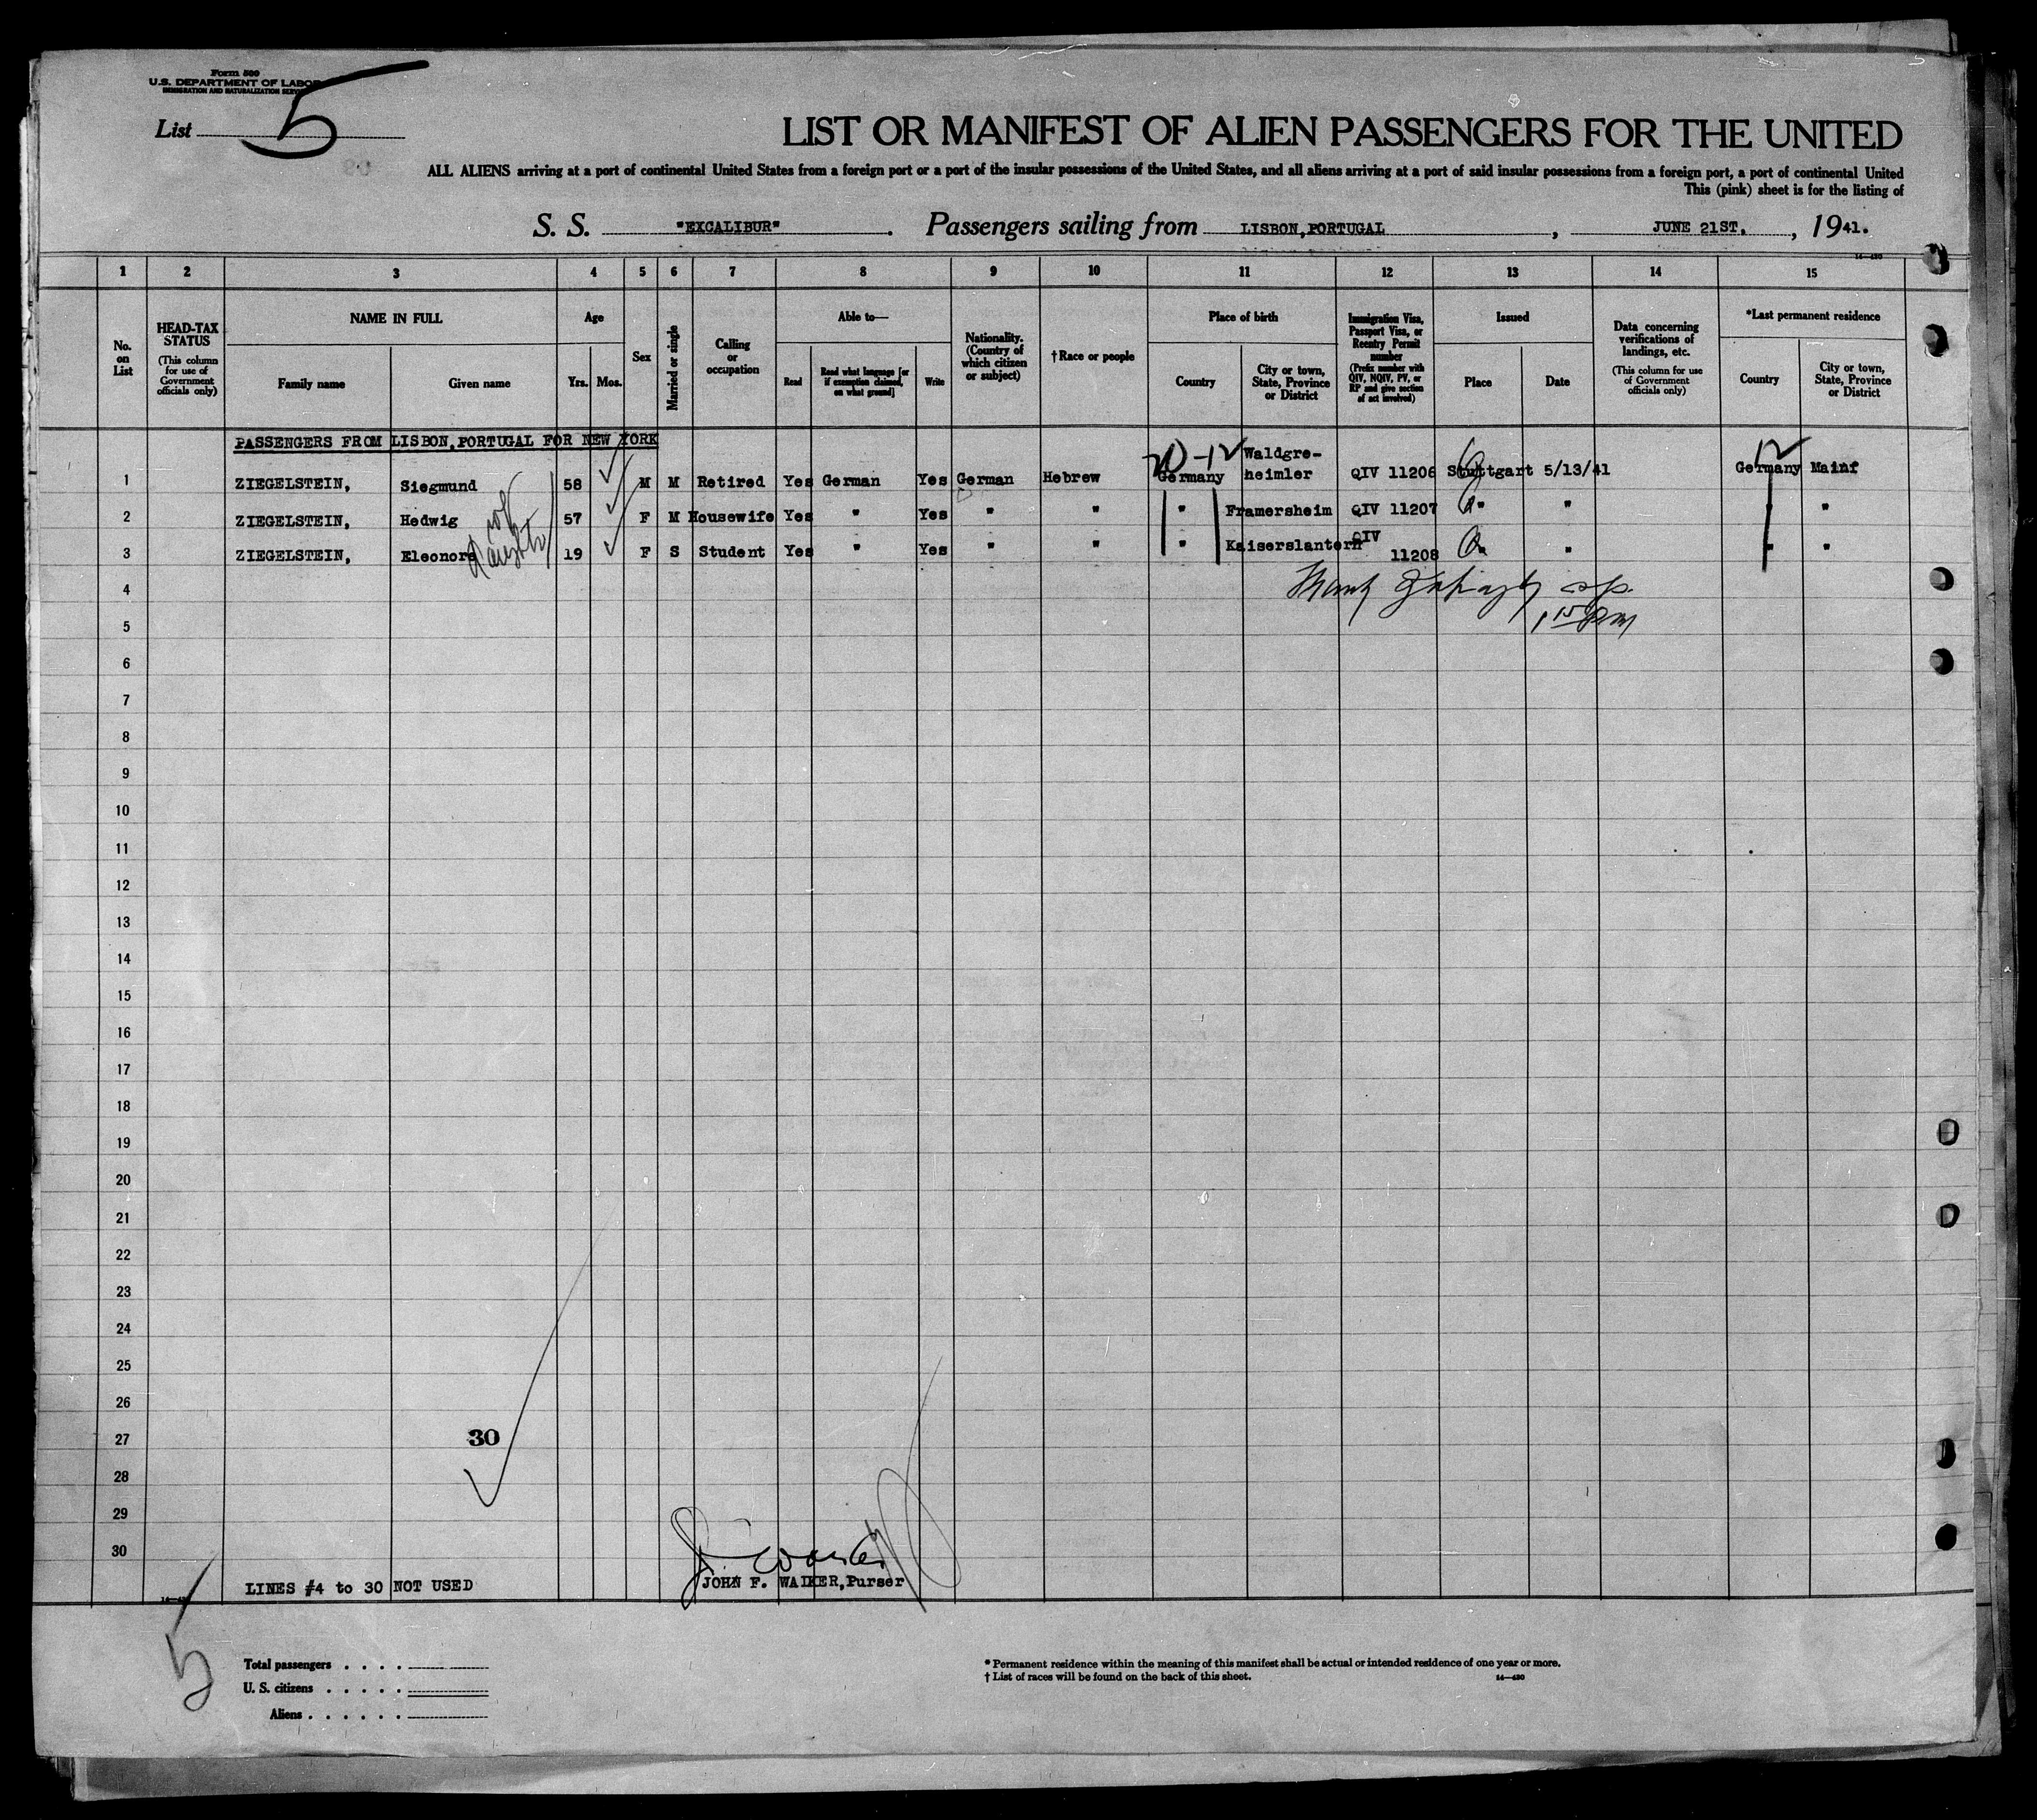 Form 500
U.S. DEPARTMENT OF LABOR
IMMIGRATION AND NATURALIZATION SERVICE
List 5
LIST OR MANIFEST OF ALIEN PASSENGERS FOR THE UNITED
ALL ALIENS arriving at a port of continental United States from a foreign port or a port of the insular possessions of the United States, and all aliens arriving at a port of said insular possessions from a foreign port, a port of continental United
This (pink) sheet is for the listing of
S. S. "EXCALIBUR". Passengers sailing from LISBON,PORTUGAL, JUNE 21ST., 1941.
1 2 3 4 5 6 7 8 9 10 11 12 13 14 15
No. on List
HEAD-TAX STATUS
(This column for use of Government officials only)
NAME IN FULL
Family name
Given name
Age
Yrs. Mos.
Sex
Married or single
Calling or occupation
Able to—
Read
Read what language [or if exemption claimed, on what ground]
Write
Nationality. (Country of which citizen or subject)
†Race or people
Place of birth
Country
City or town, State, Province or District
Immigration Visa, Passport Visa, or Reentry Permit number
(Prefix number with QIV, NQIV, PV, or RP and give section of act involved)
Issued
Place
Date
Data concerning verifications of landings, etc.
(This column for use of Government officials only)
*Last permanent residence
Country
City or town, State, Province or District
PASSENGERS FROM LISBON,PORTUGAL FOR NEW YORK
1 ZIEGELSTEIN, Siegmund 58 M M Retired Yes German Yes German Hebrew Germany Waldgre-heimler QIV 11206 Stuttgart 5/13/41 Germany Mainf
2 ZIEGELSTEIN, Hedwig wife 57 F M Housewife Yes " Yes " " " Framersheim QIV 11207 " " "
3 ZIEGELSTEIN, Eleonora daughter 19 F S Student Yes " Yes " " " Kaiserslantern QIV 11208 " " " "
4
5
1 15 PM
6
7
8
9
10
11
12
13
14
15
16
17
18
19
20
21
22
23
24
25
26
27
30
28
29
30
LINES #4 to 30 NOT USED
JOHN F. WALKER,Purser
14—430
5
Total passengers . . . .
U. S. citizens . . . . .
Aliens . . . . . .
* Permanent residence within the meaning of this manifest shall be actual or intended residence of one year or more.
† List of races will be found on the back of this sheet.
14—430